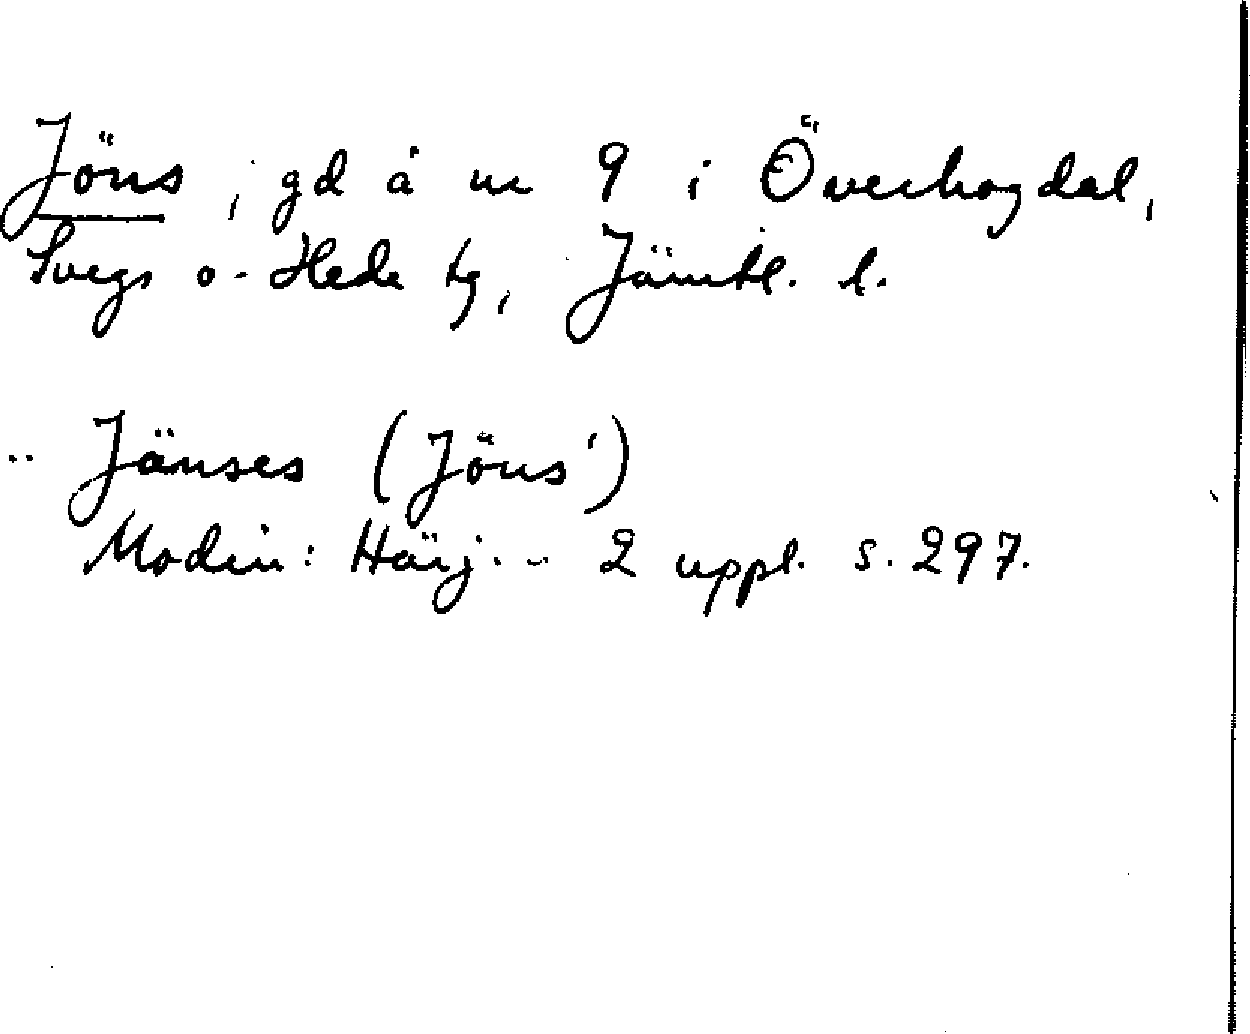 Jöns, gd å nr 9 i Överhogdal,
Svegs o. Hede tg, Jämtl. l.
.. Jänses (Jöns')
Modin: Härj. .. 2 uppl. s. 297.